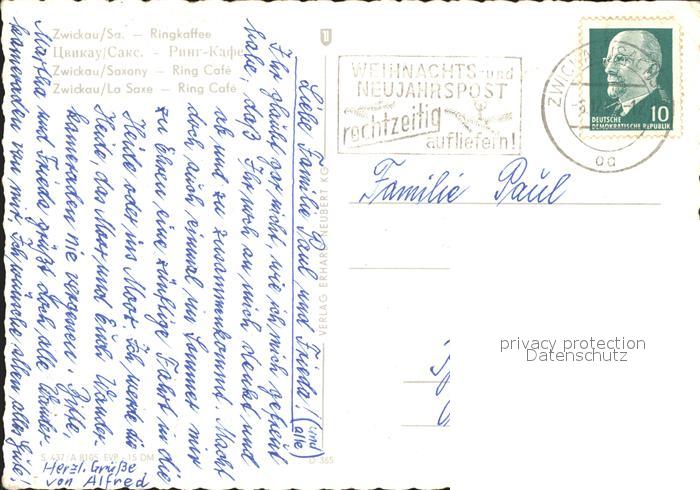 Zwickau/Sa. — Ringkaffee
Цвикау/Сакс. - Ринг-Кафе
Zwickau/Saxony — Ring Café
Zwickau/La Saxe — Ring Café
WEIHNACHTS- und
NEUJAHRSPOST
rechtzeitig
aufliefern!
ZWICKAU
10
DEUTSCHE
DEMOKRATISCHE REPUBLIK
Familie Paul
Liebe Familie Paul und Frieda! (und alle)
Ihr glaubt gar nicht, wie ich mich gefreut
habe, daß Ihr noch an mich denkt und
ab und zu zusammenkommt. Macht
doch auch einmal im Sommer mir
zu Ehren eine zünftige Fahrt in die
Heide oder ins Moor. Ich werde die
Heide, das Moor und Euch Wander-
kameraden nie vergessen. Grüße,
Martha und Frieda grüßt doch alle Wander-
kameraden von mir. Ich wünsche allen alles Gute!
Herzl. Grüße
von Alfred
VERLAG ERHARD NEUBERT KG
S 437/A 8105 EVP -.15 DM
D 365
privacy protection
Datenschutz